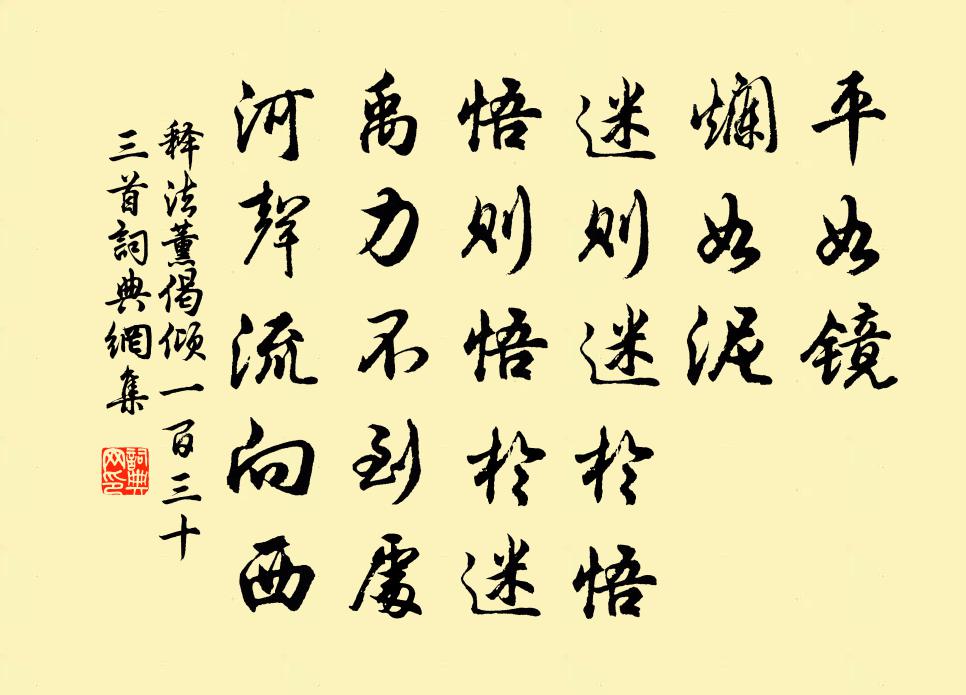 平如镜
爛如泥
迷則迷於悟
悟则悟於迷
禹力不到處
河聲流向西
释法薰偈倾一百三十
三首詞典網集
詞典
网印